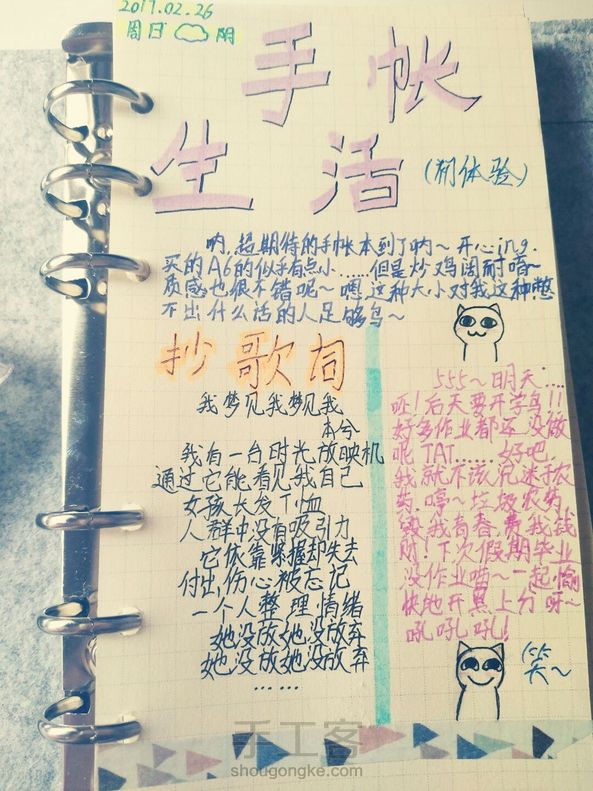 2017.02.26
周日 阴
手帐
生活
(初体验)
呐,超期待的手帐本到了呐~开心ing.
买的A6的似乎有点小……但是炒鸡阔耐唔~
质感也很不错呢~嗯,这种大小对我这种憋
不出什么话的人足够鸟~
抄歌词
我梦见我梦见我
本兮
我有一台时光放映机
通过它能看见我自己
女孩长发T恤
人群中没有吸引力
它依靠紧握却失去
付出,伤心被忘记
一个人整理情绪
她没放她没放弃
她没放她没放弃
……
555~明天……
呸!后天要开学鸟!!
好多作业都还没做
呢TAT……好吧,
我就不该沉迷于农
药,哼~垃圾农药,
毁我青春,费我钱
财!下次假期毕业
没作业喵~一起愉
快地开黑上分呀~
吼吼吼!
555
天~
手工客
shougongke.com